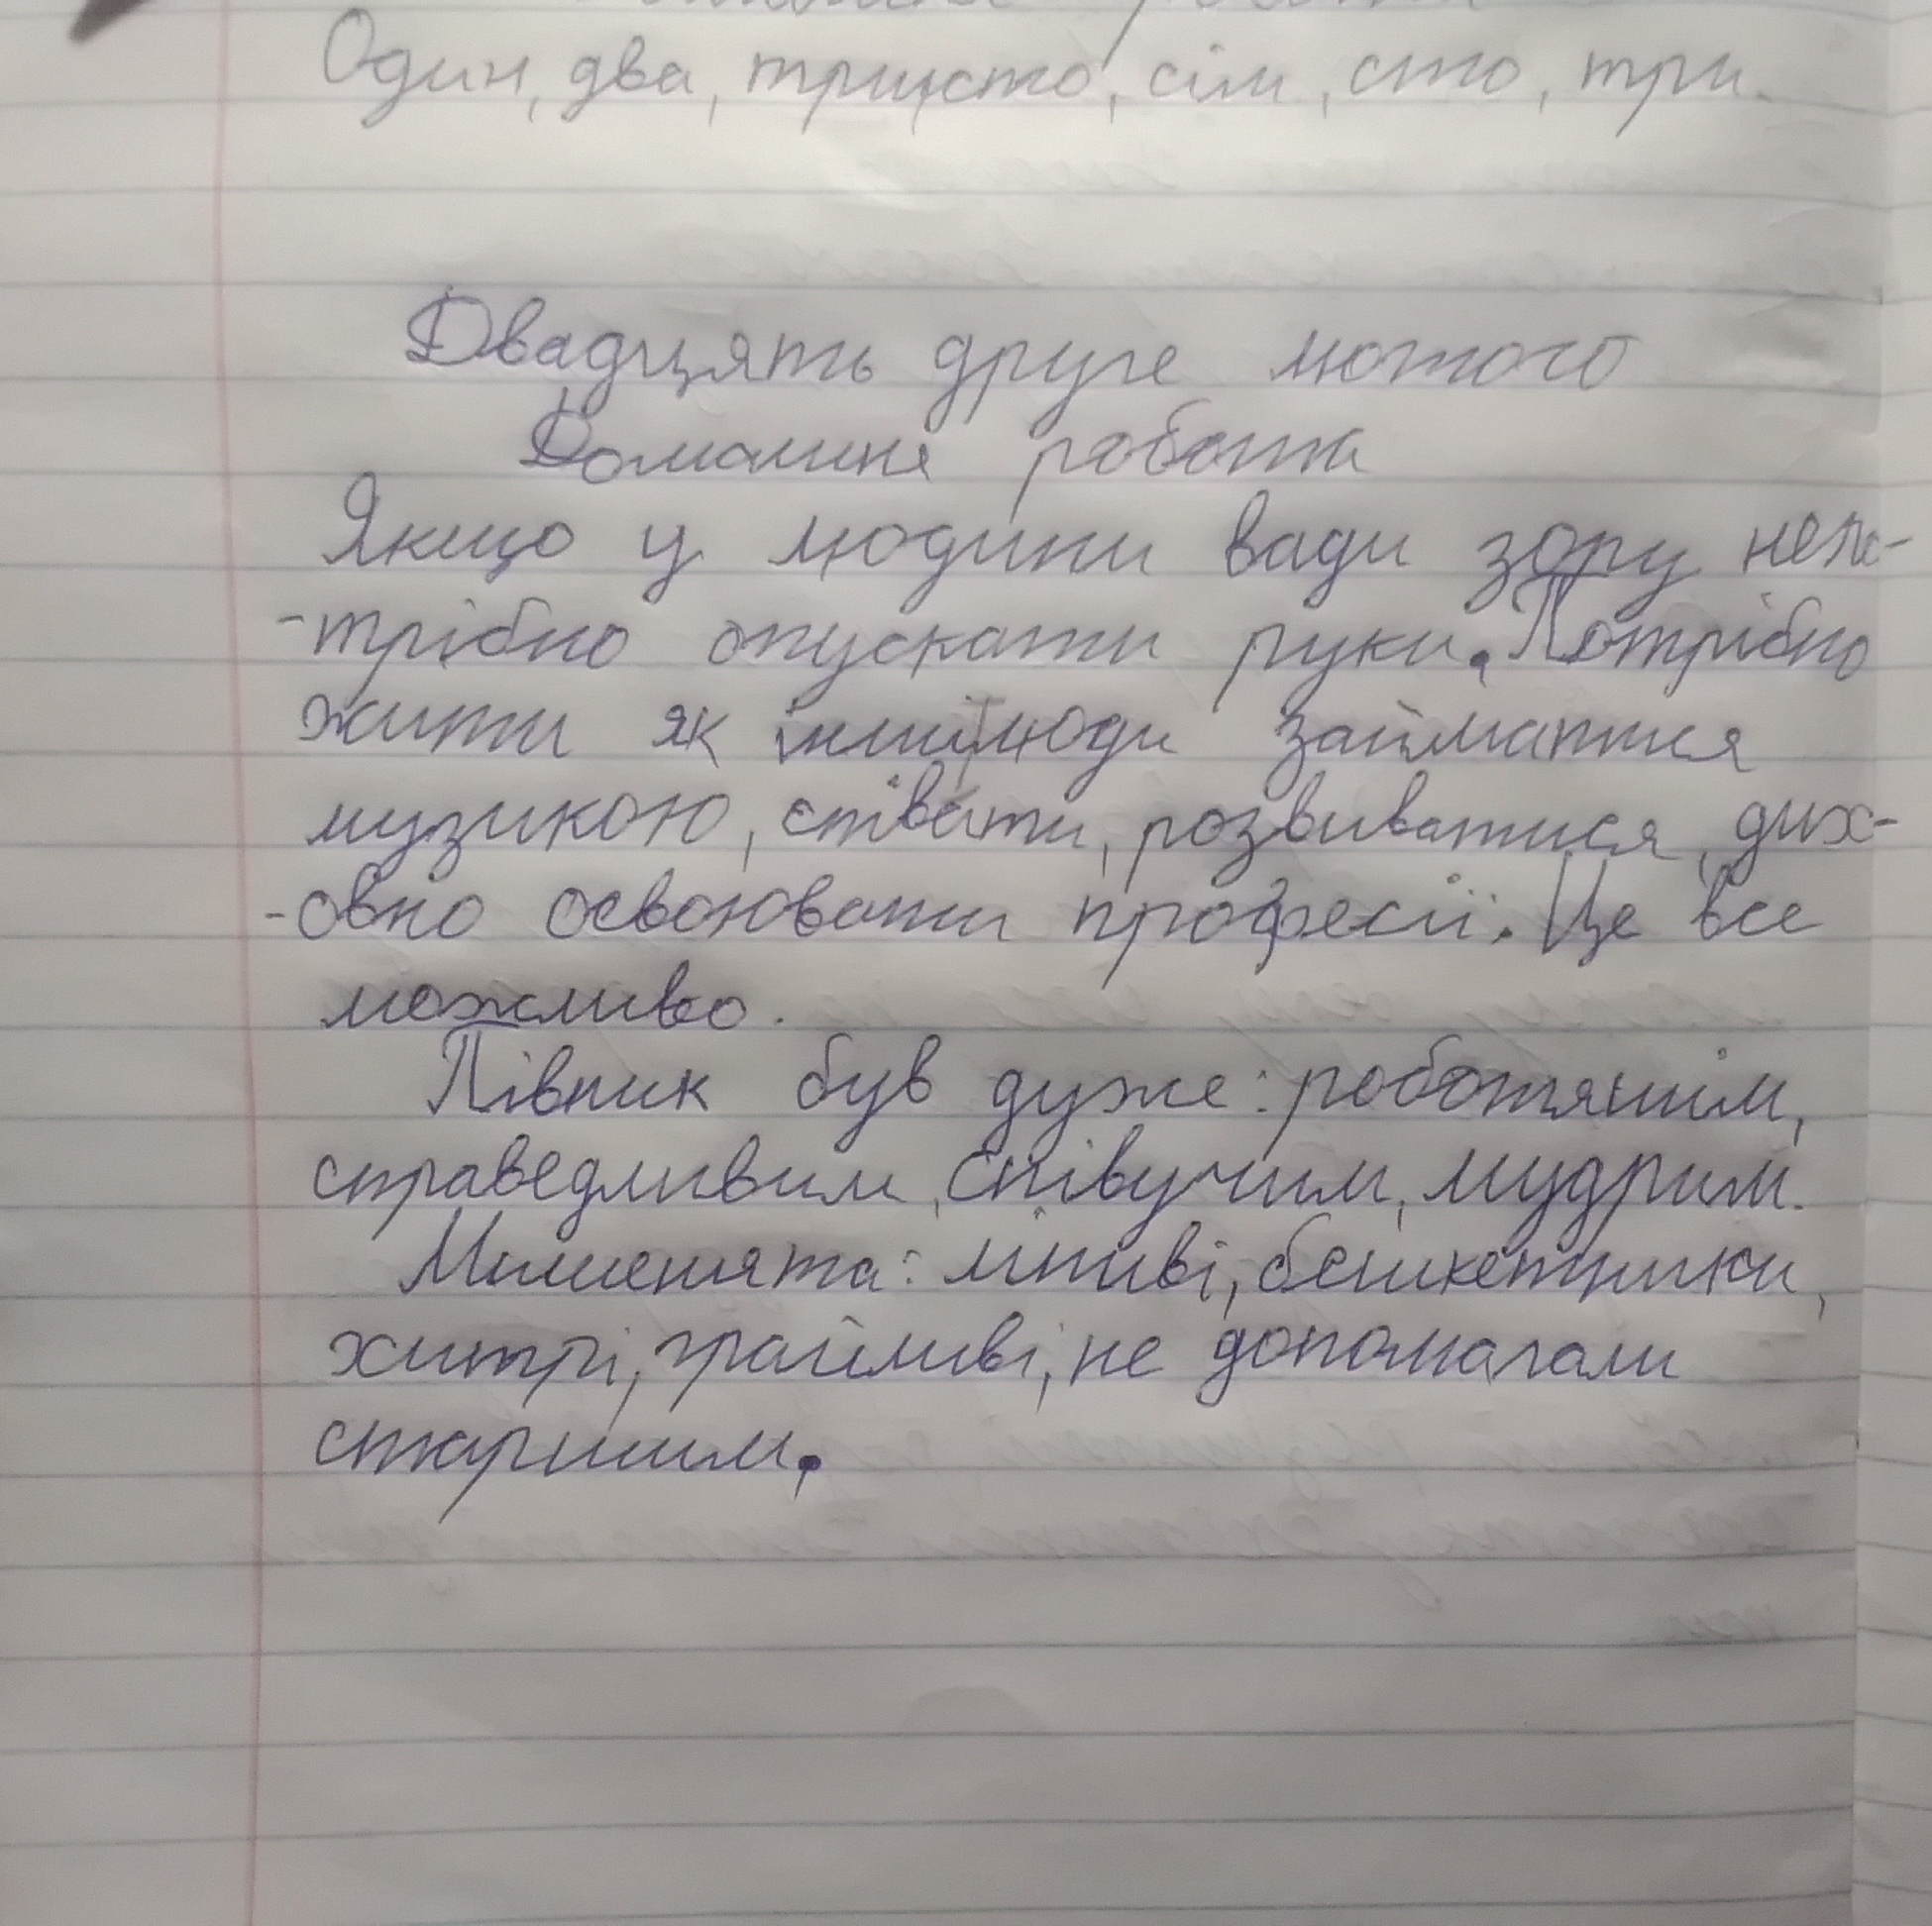 Один, два, тристо, сім, сто, три.
Двадцять друге лютого
Домашня робота
Якщо у людини вади зору непо-
-трібно опускати руки. Потрібно
жити як інші люди займатися
музикою, співати, розвиватися, дих-
-овно освоювати професії. Це все
можливо.
Півник був дуже: роботящім,
справедливим, співучим, мудрим.
Мишенята: ліниві, бешкетники,
хитрі, грайливі, не допомагали
старшим.